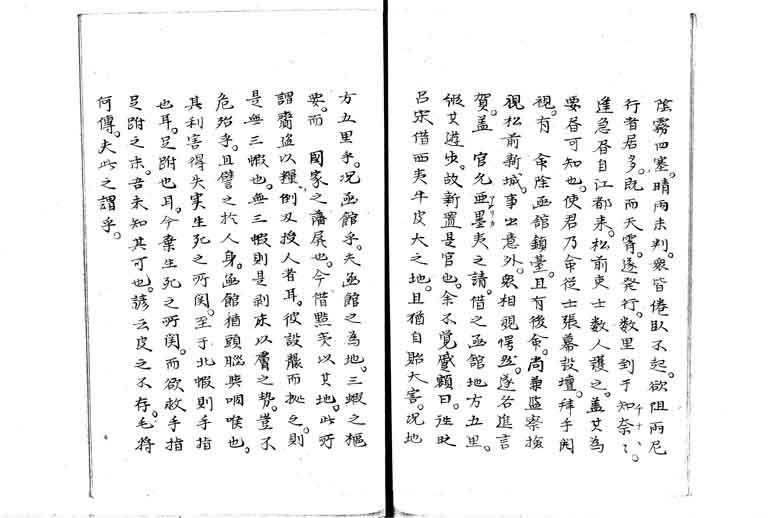 陰霧四塞。晴雨未判。衆皆倦臥不起。欲阻雨尼
行者居多。既而天霽。遂発行。数里到于知奈々。
チナナ
逢急昏自江都来。松前吏士数人護之。蓋其為
要昏可知也。使君乃命従士張幕設壇。拜手閲
視。有命除函館鎮臺。且有後命。尚兼監察按
視松前新城。事出意外。衆相視愕然。遂各進言
賀。蓋官允亜墨夷之請。借之函館地方五里。
メリケン
縦其遊歩。故新置是官也。余不覚蹙額曰。往時
呂宋借西夷牛皮大之地。且猶自貽大害。况地
方五里乎。况函館乎。夫函館之為地。三蝦之樞
要。而 國家之藩屏也。今借點夷以其地。此所
謂齎盗以糧倒刃授人者耳。彼設襲而拠之。則
是無三蝦也。無三蝦則是剥床以膚之勢。豈不
危殆乎。且譬之於人身。函館猶頭脳与咽喉也。
其利害得失。実生死之所関。至于北蝦則手指
也耳。足跗也耳。今棄生死之所関。而欲救手指
足跗之末。吾未知其可也。諺云。皮之不存。毛将
何傅。夫此之謂乎。